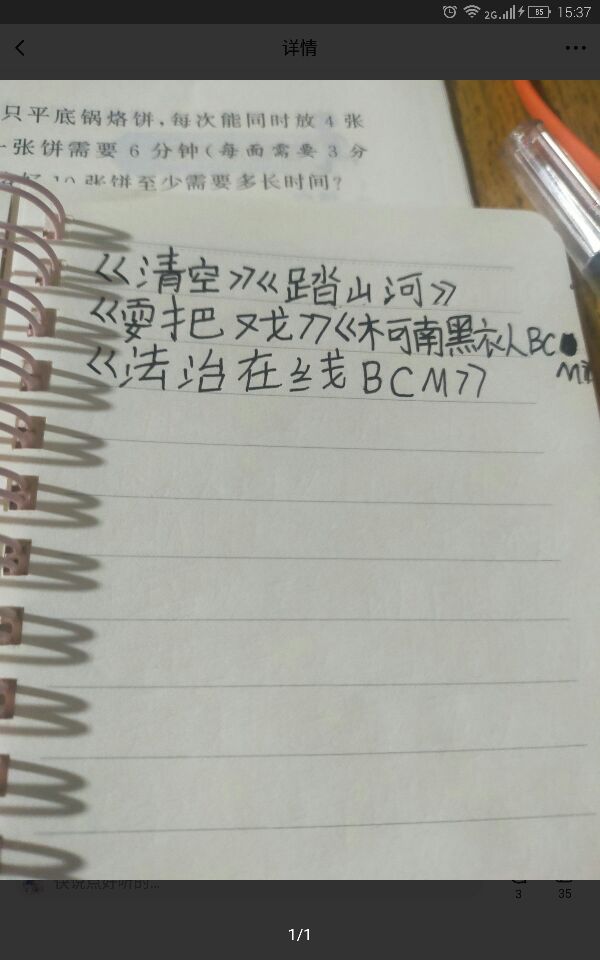 2G 85 15:37
详情
只平底锅烙饼，每次能同时放 4 张
张饼需要 6 分钟（每面需要 3 分
10 张饼至少需要多长时间？
《清空》《踏山河》
《耍把戏》《木可南黑衣人BC
《法治在线BCM》
快说点好听的...
3 35
1/1